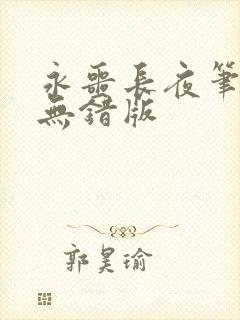 永噩長夜筆
無錯版
郭昊瑜